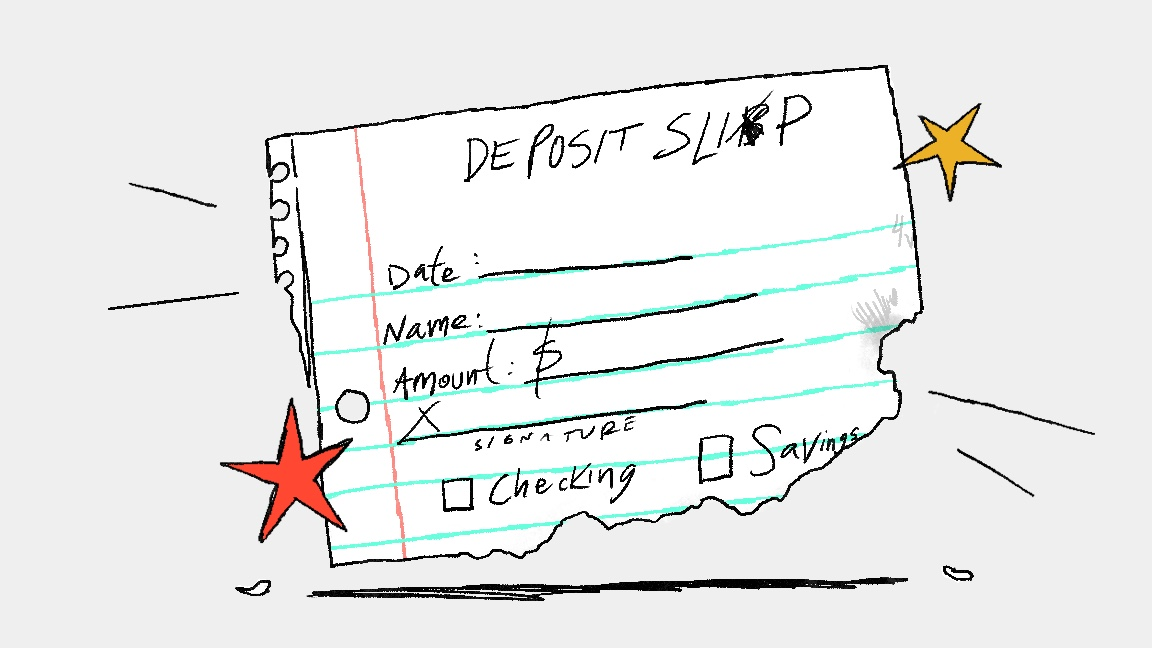 DEPOSIT SLIP
Date:
Name:
Amount: $
X
SIGNATURE
Checking Savings